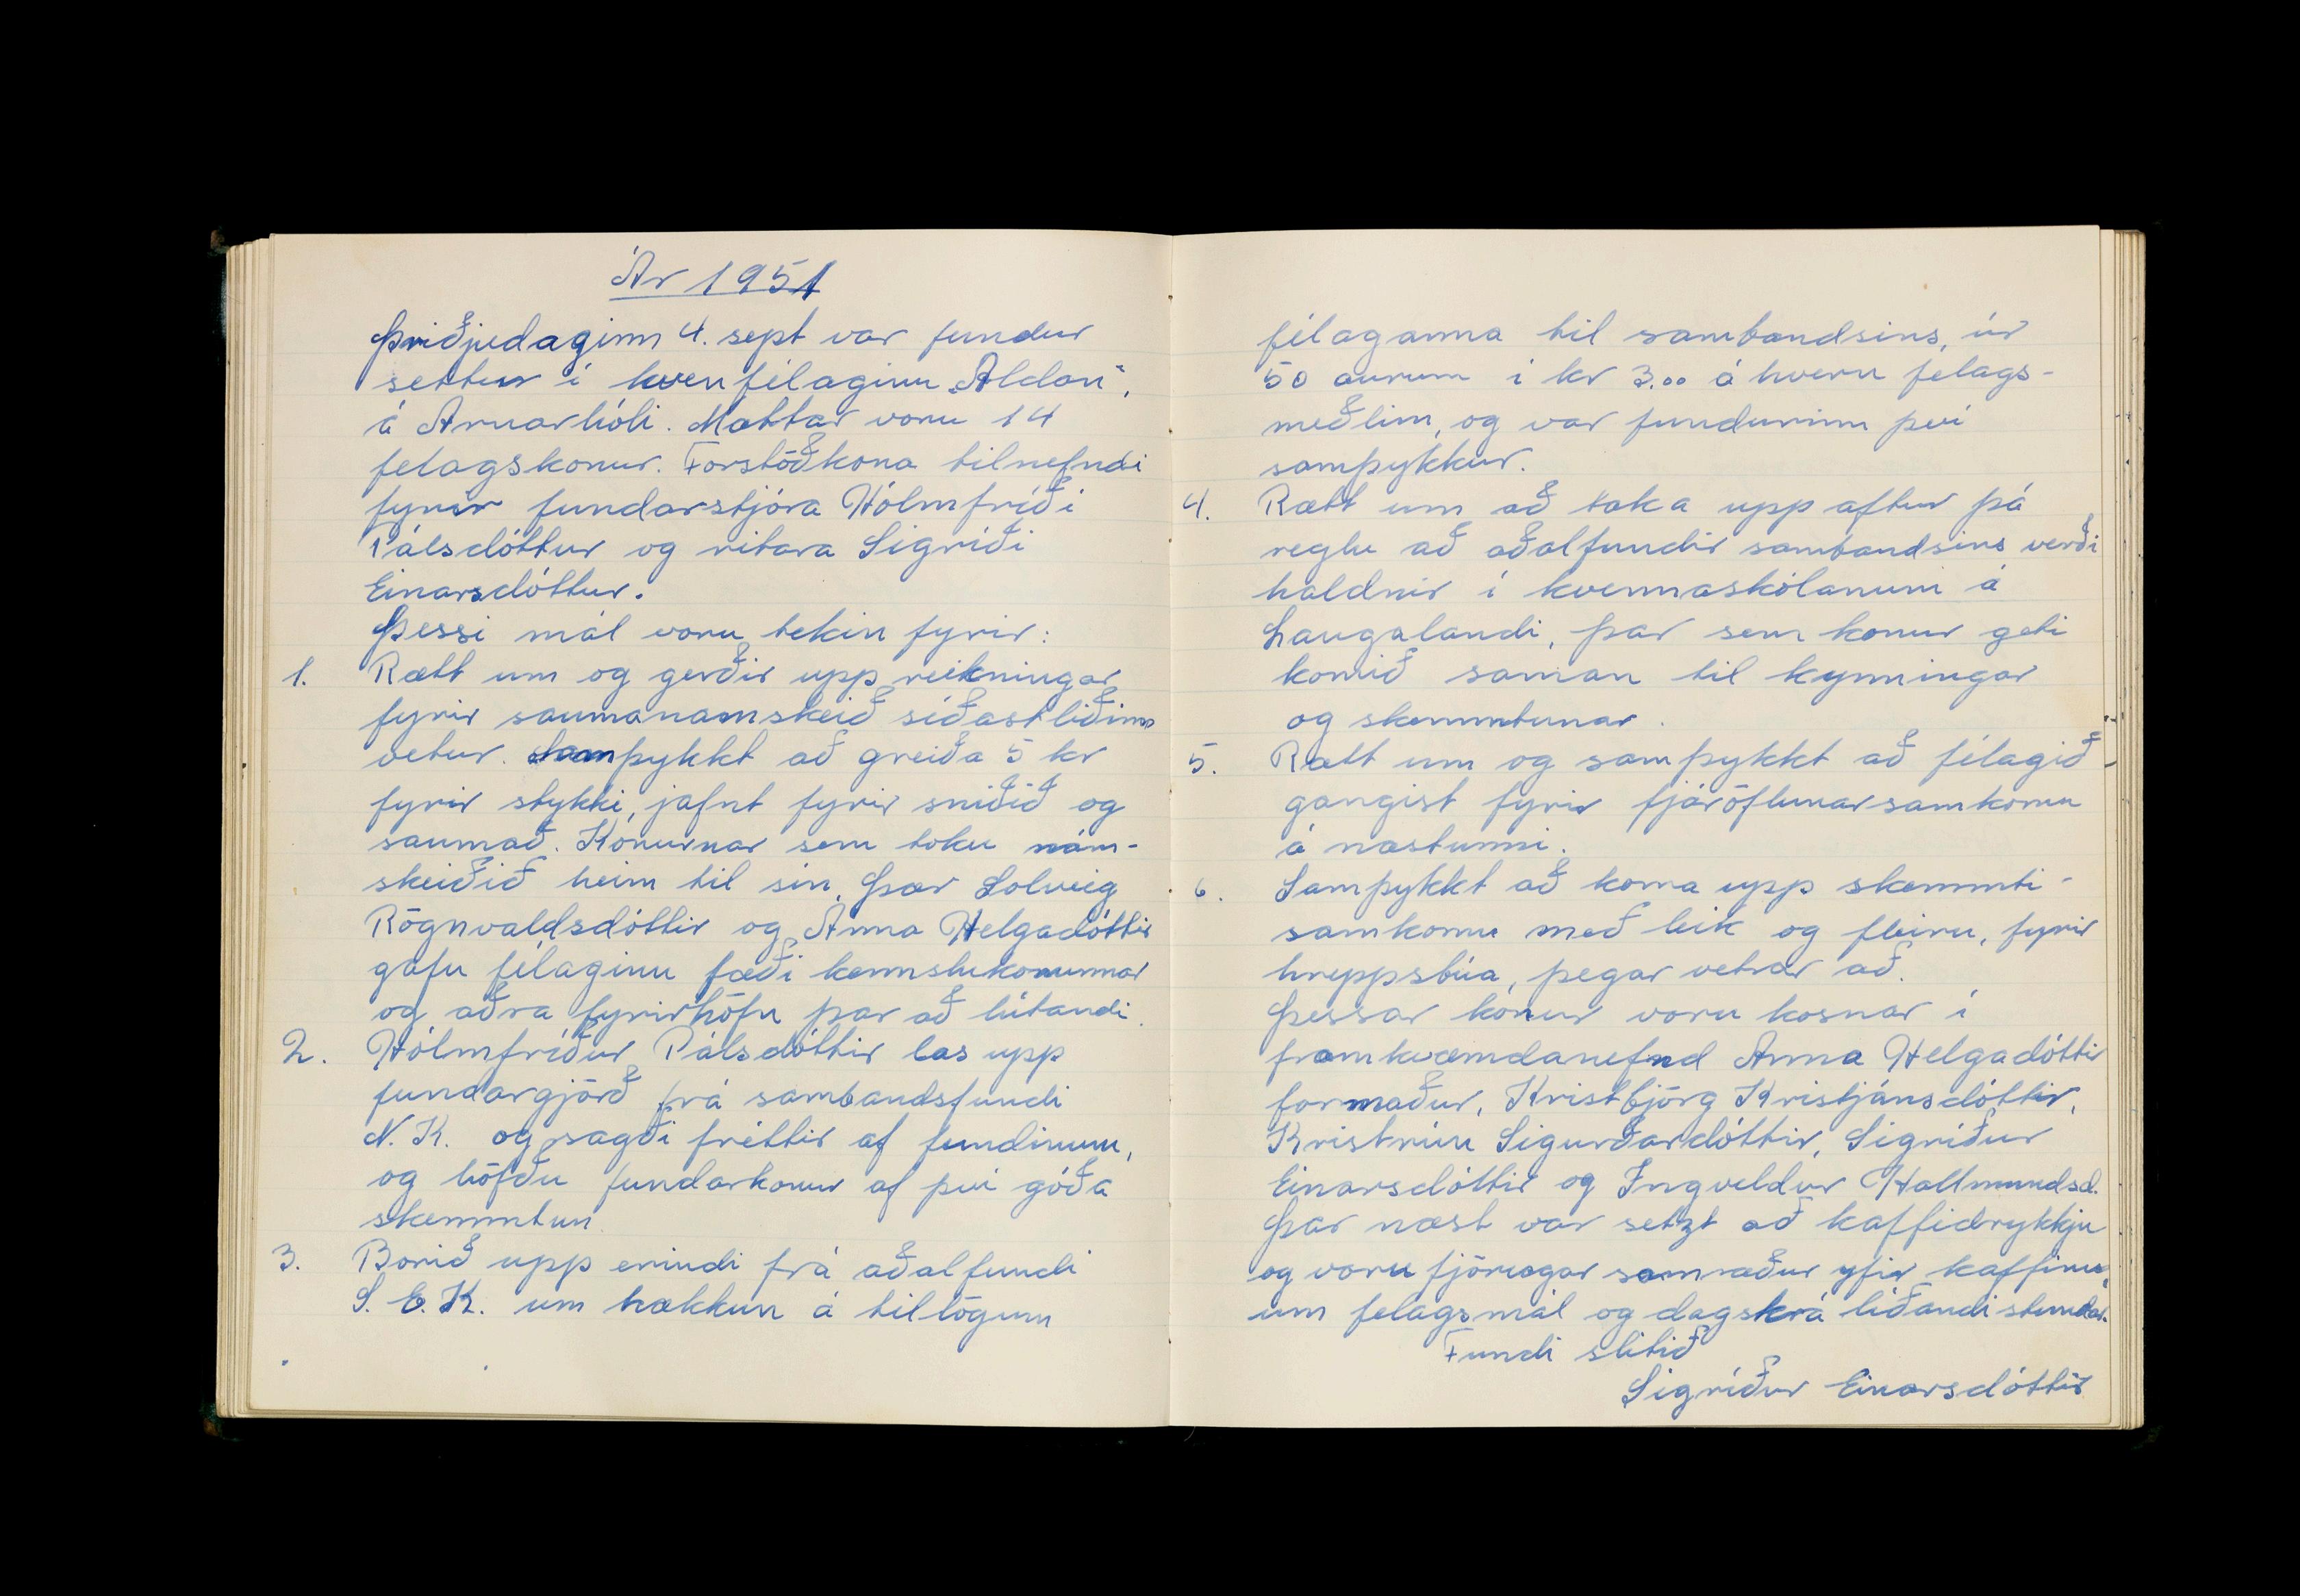 Ár 1951
Þriðjudaginn 4. sept var fundur
settur í kvenfélaginu „Aldan",
á Arnarhóli. Mættar voru 14
felagskonur. Forstöðkona tilnefndi
fyrir fundarstjóra Hólmfríði
Pálsdóttur og ritara Sigríði
Einarsdóttur.
Þessi mál voru tekin fyrir:
1. Rætt um og gerðir upp reikningar
fyrir saumanamskeið síðastliðinn
vetur. Samþykkt að greiða 5 kr
fyrir stykki, jafnt fyrir sniðið og
saumað. Konurnar sem toku nám-
skeiðið heim til sin, Þær Solveig
Rögnvaldsdóttir og Anna Helgadóttir
gáfu félaginu fæði kennslukonunnar
og aðra fyrirhöfn þar að lútandi.
2. Hólmfríður Pálsdóttir las upp
fundargjörð frá sambandsfundi
N. K. og sagði fréttir af fundinum,
og höfðu fundarkonur af því góða
skemmtun.
3. Borið upp erindi frá aðalfundi
S. E. K. um hækkun á tillögum
félaganna til sambandsins, úr
50 aurum í kr 3.00 á hvern felags-
meðlim, og var fundurinn því
samþykkur.
4. Rætt um að taka upp aftur þá
reglu að aðalfundir sambandsins verði
haldnir í kvennaskólanum á
Laugalandi, þar sem konur geti
komið saman til kynningar
og skemmtunar.
5. Rætt um og samþykkt að félagið
gangist fyrir fjáröflunarsamkomu
á næstunni.
6. Samþykkt að koma upp skemmti-
samkomu með leik og fleiru, fyrir
hreppsbúa, þegar vetrar að.
Þessar konur voru kosnar í
framkvæmdanefnd Anna Helgadóttir
formaður, Kristbjörg Kristjánsdóttir,
Kristrún Sigurðardóttir, Sigríður
Einarsdóttir og Ingveldur Hallmundsd.
Þar næst var setzt að kaffidrykkju
og voru fjörugar samræður yfir kaffinu,
um felagsmál og dagskrá líðandi stundar.
Fundi slitið
Sigríður Einarsdóttir